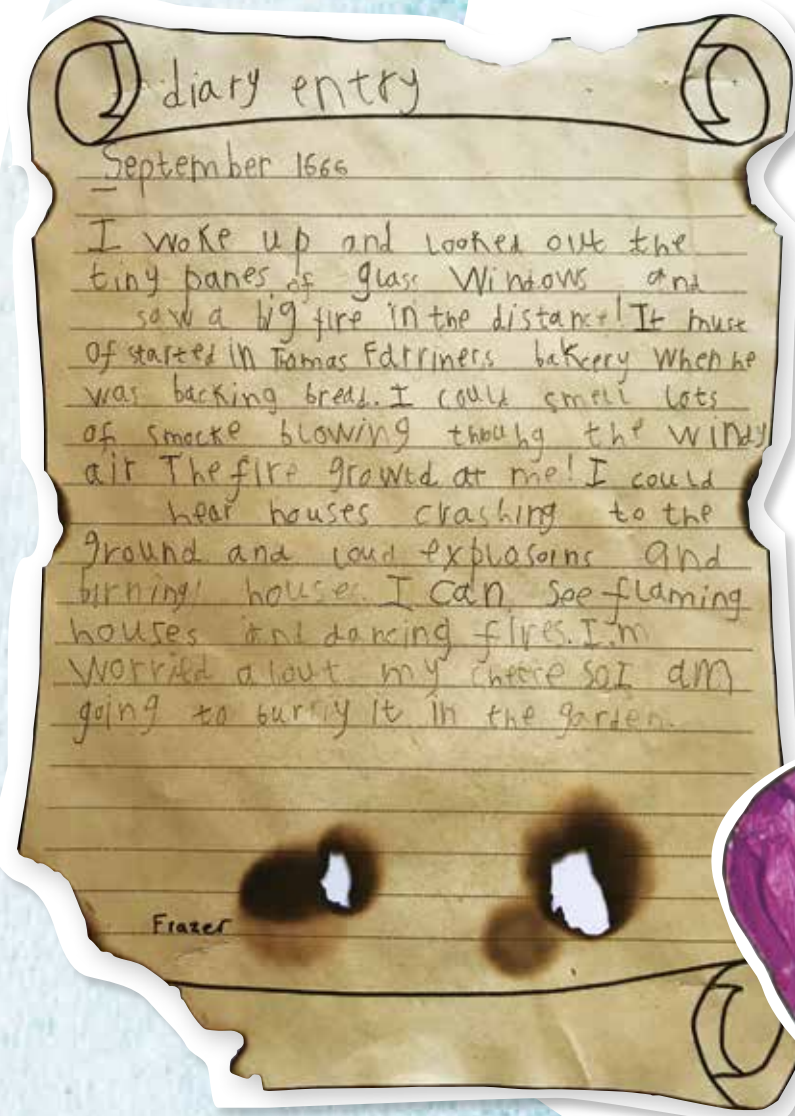 diary entry
September 1666
I woke up and looked out the
tiny panes of glass windows and
saw a big fire in the distance! It must
of started in Tomas Farriners bakeery when he
was backing bread. I could smell lots
of smocke blowing thouhg the windy
air The fire growld at me! I could
hear houses crashing to the
ground and loud explosoins and
birning houses. I can see flaming
houses and dancing fires. I.m
worried about my cheese so I am
going to burriy it in the garden.
Frazer